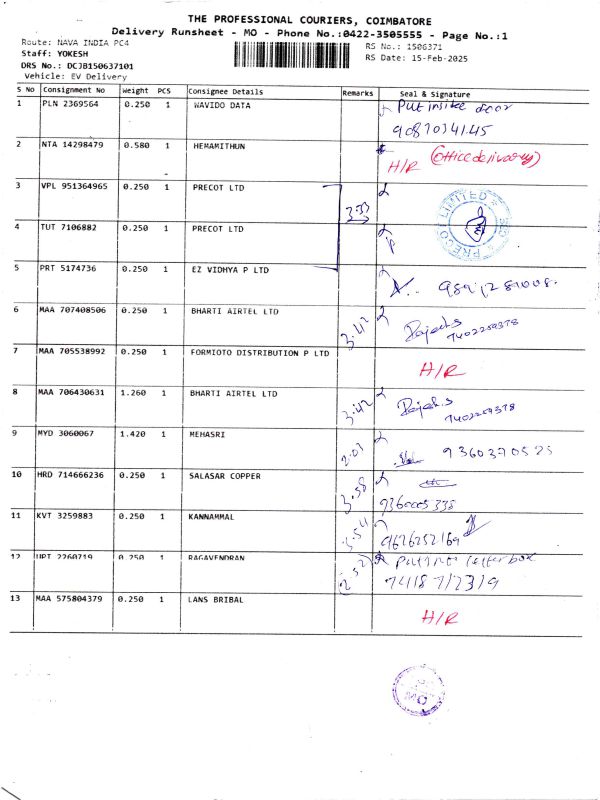 THE PROFESSIONAL COURIERS, COIMBATORE
Delivery Runsheet - MO - Phone No.:0422-3505555 - Page No.:1
Route: NAVA INDIA PC4 RS No.: 1506371
Staff: YOKESH RS Date: 15-Feb-2025
DRS No.: DCJB150637101
Vehicle: EV Delivery
S No Consignment No Weight PCS Consignee Details Remarks Seal & Signature
1 PLN 2369564 0.250 1 WAVIDO DATA Put inside door
9087034145
2 NTA 14298479 0.580 1 HEMAMITHUN H/R (Office delivary)
3 VPL 951364965 0.250 1 PRECOT LTD 3:33
PRECOT LIMITED
4 TUT 7106882 0.250 1 PRECOT LTD
5 PRT 5174736 0.250 1 EZ VIDHYA P LTD
6 MAA 707408506 0.250 1 BHARTI AIRTEL LTD 3:42 Rajesh.S
7402259378
7 MAA 705538992 0.250 1 FORMIOTO DISTRIBUTION P LTD H/R
8 MAA 706430631 1.260 1 BHARTI AIRTEL LTD 3:42 Rajesh.S
7402259378
9 MYD 3060067 1.420 1 MEHASRI 2.03 9360370525
10 HRD 714666236 0.250 1 SALASAR COPPER 3.58
11 KVT 3259883 0.250 1 KANNAMMAL 9626252169
12 UPT 2260719 0.250 1 RAGAVENDRAN 2.52 letter box
13 MAA 575804379 0.250 1 LANS BRIBAL H/R
MO